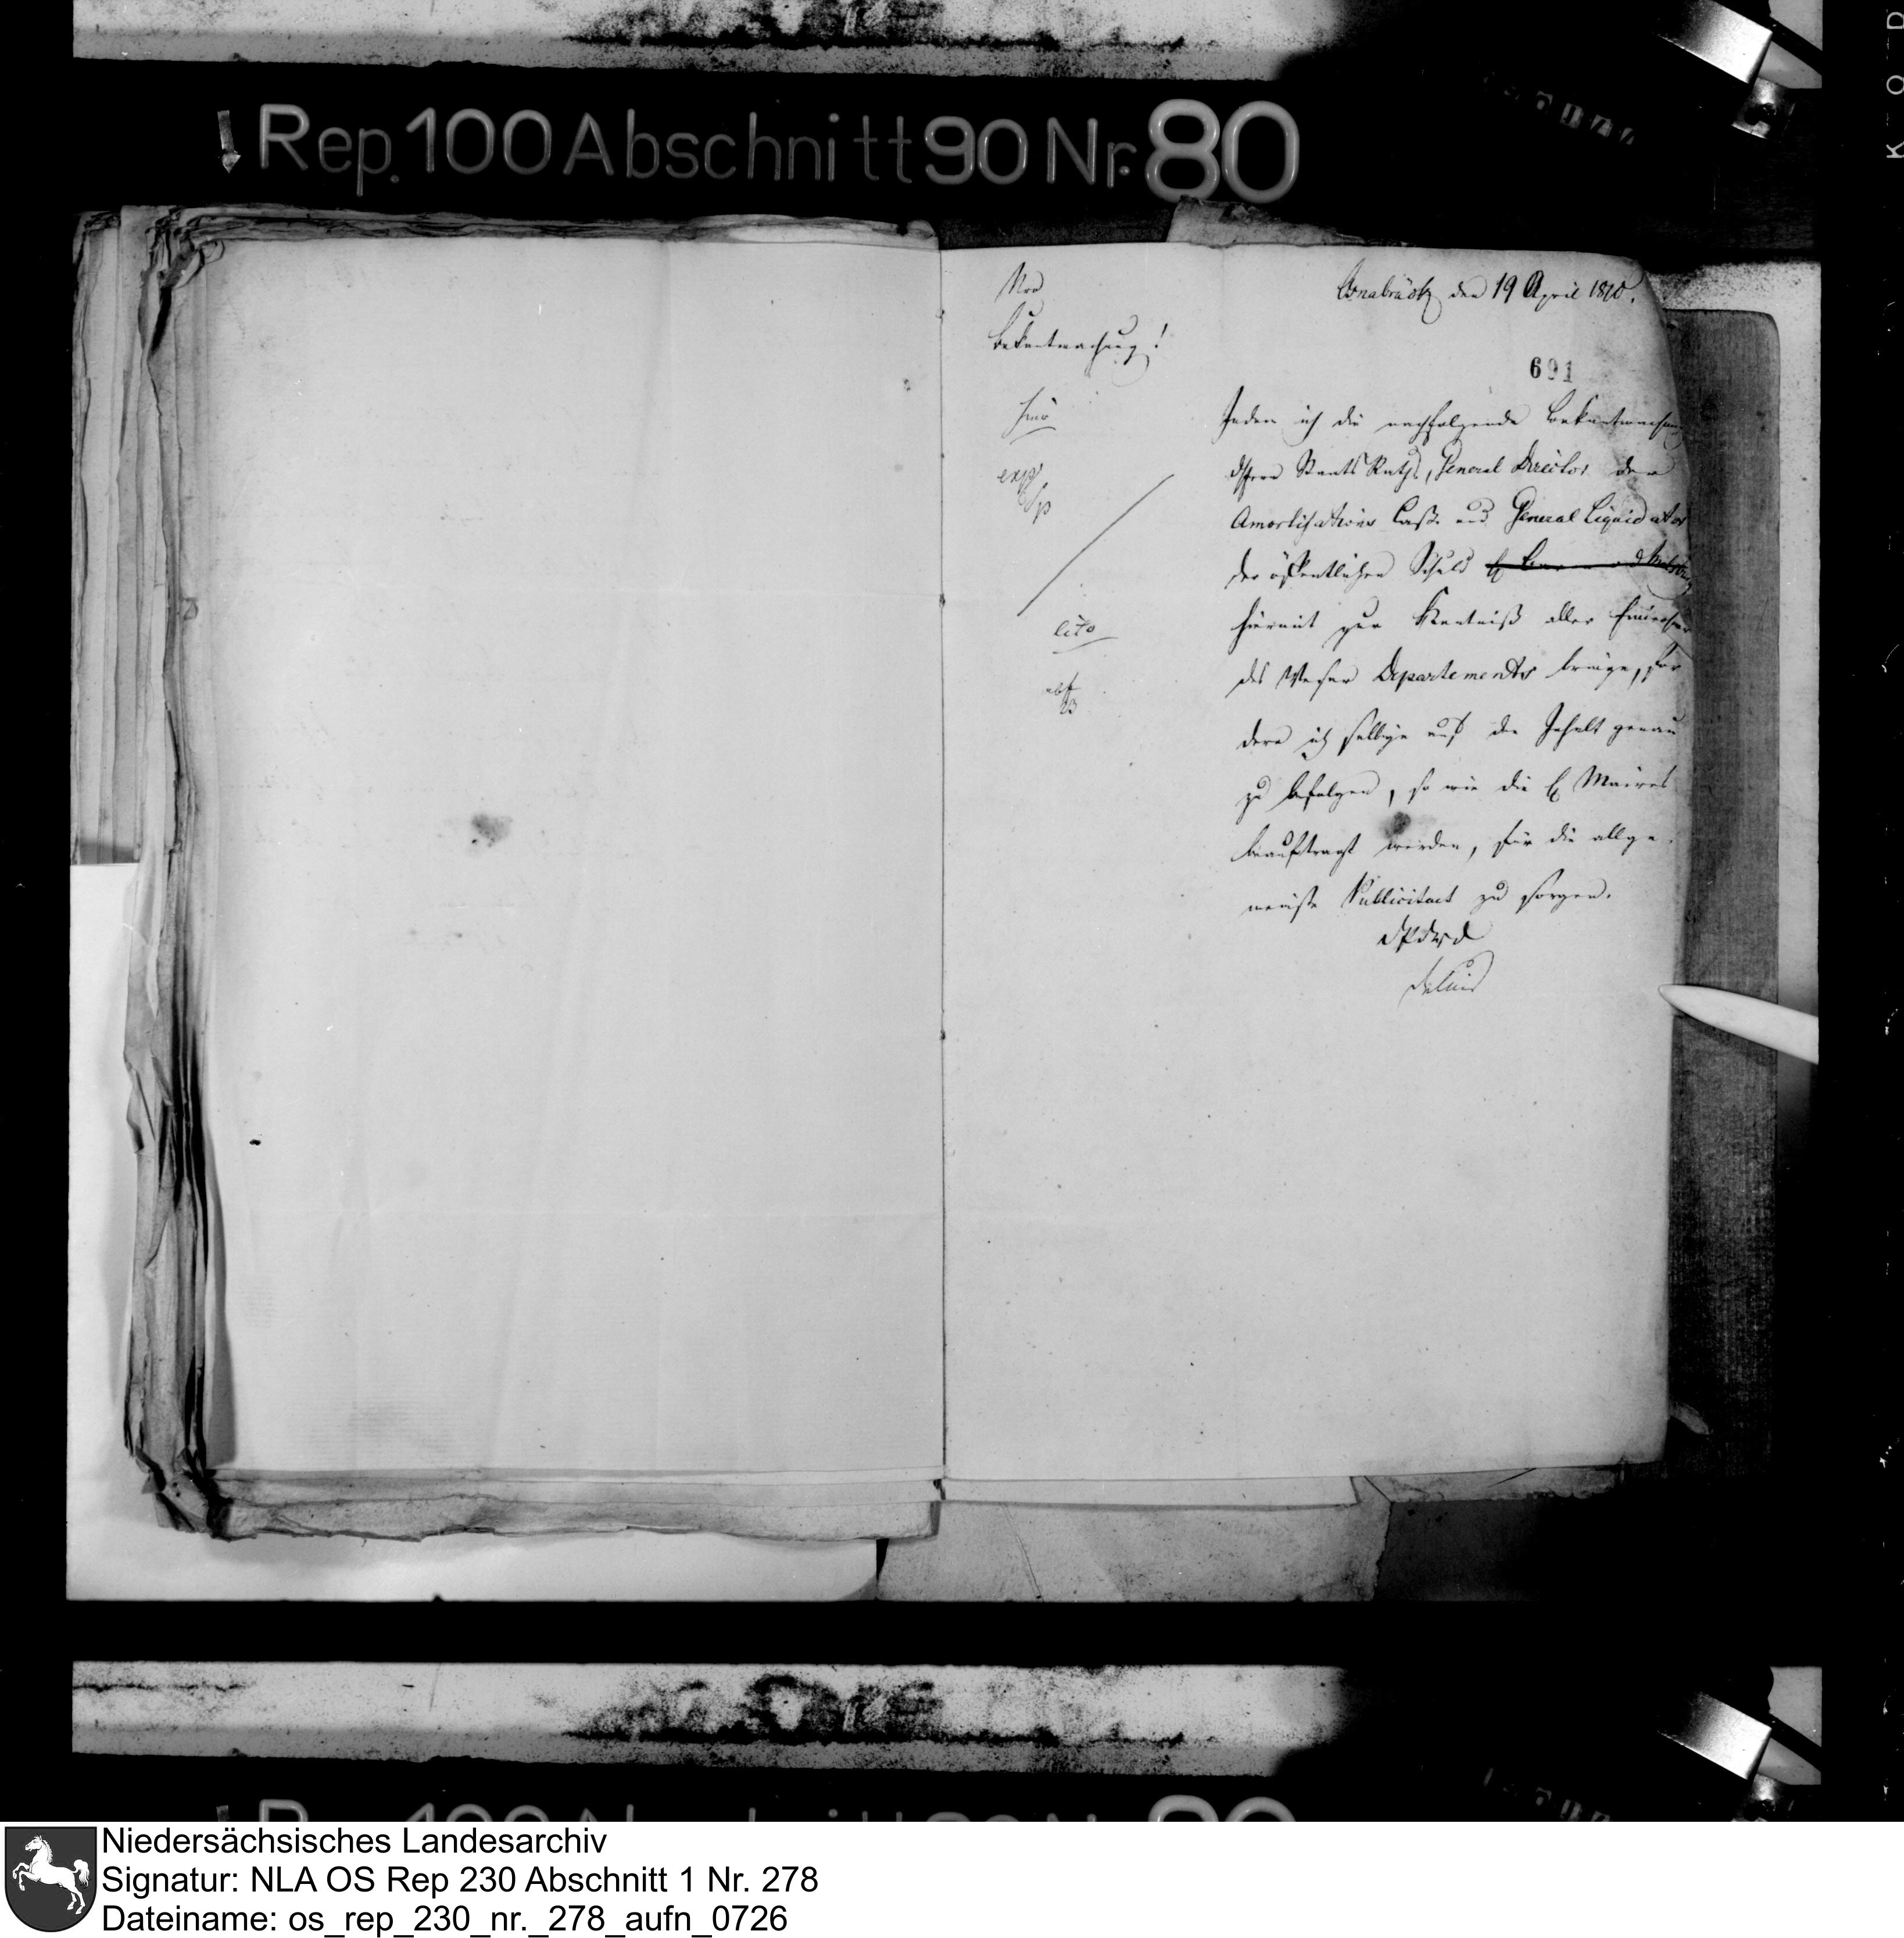 Rep. 100 Abschnitt 90 Nr. 80
Osnabrück den 19 April 1810.
Bekantmachung!
691
Indem ich die nachfolgende Bekantmachung
Staats Raths, General Director der
Amortisations Casse und General Liquidator
der öffentlichen Schuld
hiermit zur Kentniß aller Einwohner
des Weser Departements bringe, for
dere ich selbige auf den Inhalt genau
zu befolgen, so wie die H Maires
beauftragt werden, für die allge
meinste Publicitaet zu sorgen.
DPdWD
Delius
cito
Niedersächsisches Landesarchiv
Signatur: NLA OS Rep 230 Abschnitt 1 Nr. 278
Dateiname: os_rep_230_nr._278_aufn_0726